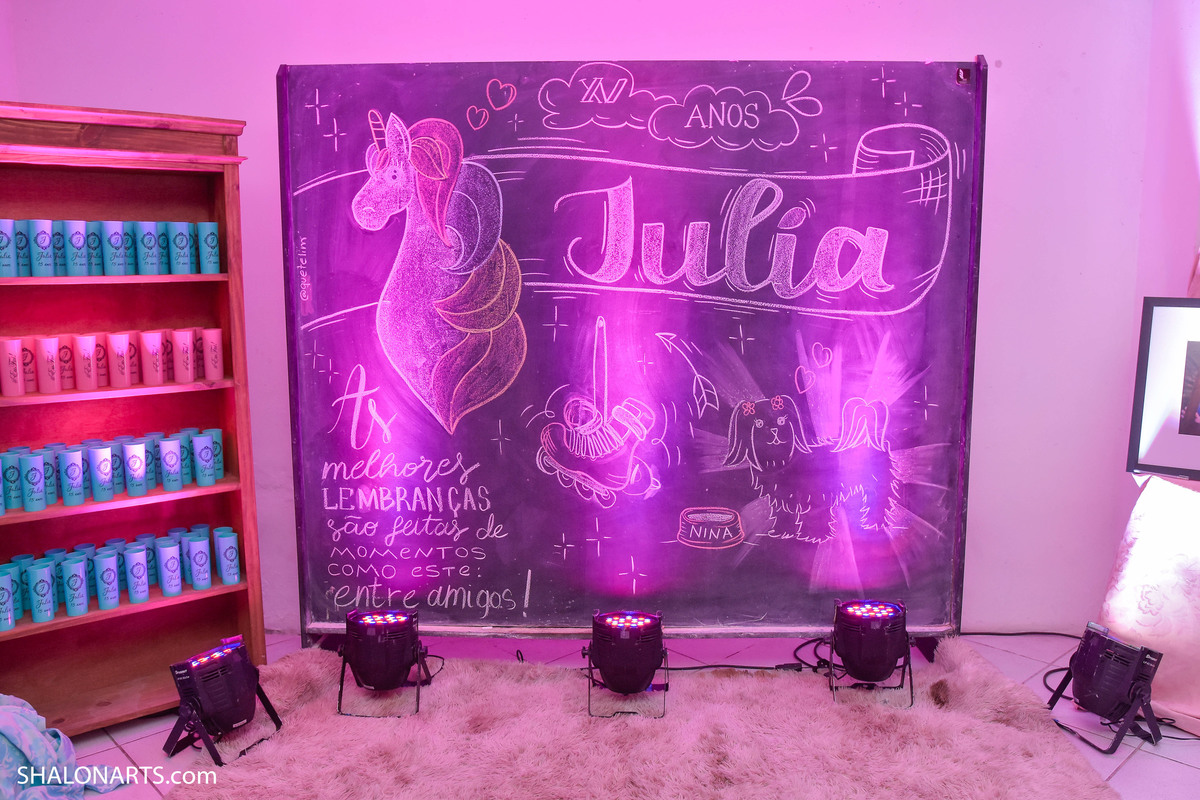 XV
ANOS
Julia
@quetelim
As
melhores
LEMBRANÇAS
são feitas de
MOMENTOS
COMO ESTE:
entre amigos!
NINA
J
Julia
15 anos
SHALONARTS.com